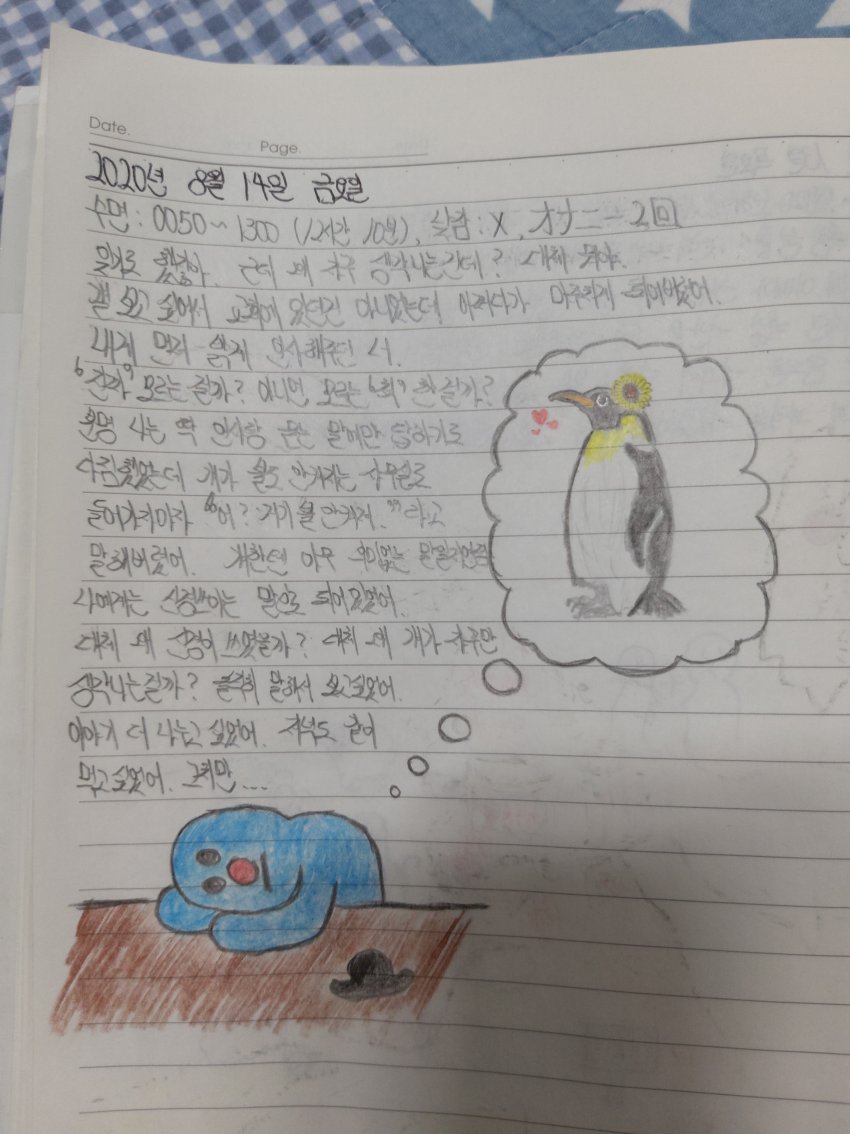 Date.
Page.
2020년 8월 14일 금요일
수면: 0050~1300 (12시간 10분), 실감: X, オナニー 2回
잊기로 했잖아. 근데 왜 자꾸 생각나는건데? 대체 뭐야.
걜 보고 싶어서 교회에 있던건 아니었는데 어쩌다가 마주치게 되어버렸어.
내게 먼저 밝게 인사해주던 너.
'진짜' 모르는 걸까? 아니면 모르는 '척' 한 걸까?
분명 나는 딱 인사랑 묻는 말에만 답하기로
다짐했었는데 걔가 불도 안켜지는 사무실로
들어가자마자 "어? 거기 불 안켜져."라고
말해버렸어. 걔한텐 아무 의미없는 말일지언정
나에게는 신경쓰이는 말으로 되어있었어.
대체 왜 신경이 쓰였을까? 대체 왜 걔가 자꾸만
생각나는걸까? 솔직히 말해서 보고싶었어.
이야기 더 나누고 싶었어. 저녁도 같이
먹고싶었어. 그치만...